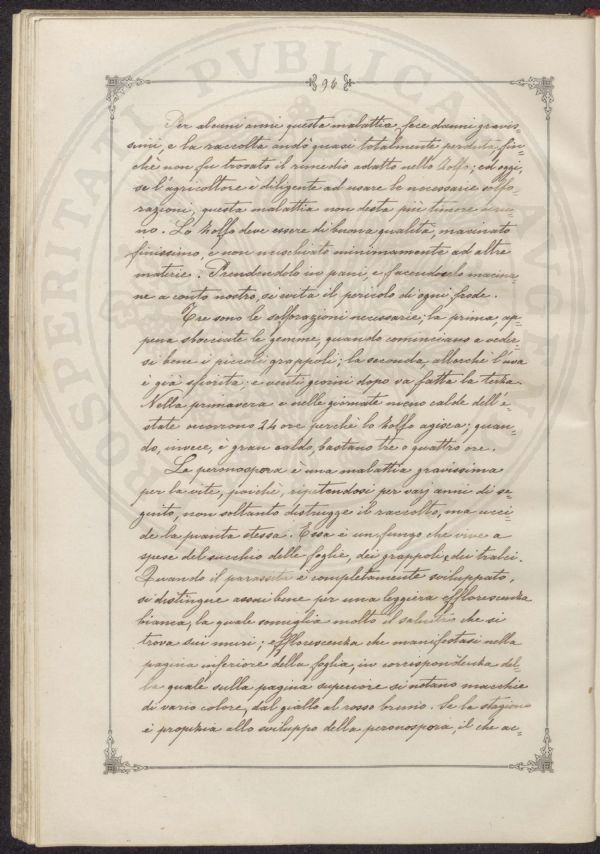 96
Per alcuni anni questa malattia fece danni gravis-
simi, e la raccolta andò quasi totalmente perduta, fin
chè non fu trovato il rimedio adatto nello Zolfo; ed oggi,
se l'agricoltore è diligente ad usare le necessarie solfo-
razioni, questa malattia non desta più timore alcu-
no. Lo Zolfo deve essere di buona qualità, macinato
finissimo, e non mischiato minimamente ad altre
materie. Prendendolo in pani, e facendoselo macina-
re a conto nostro, si evita il pericolo di ogni frode.
Tre sono le solforazioni necessarie; la prima ap-
pena sbocciate le gemme, quando cominciano a veder-
si bene i piccoli grappoli; la seconda allorchè l'uva
è già sfiorita; e venti giorni dopo va fatta la terza.
Nella primavera e nelle giornate meno calde dell'e-
state occorrono 24 ore perchè lo Zolfo agisca; quan-
do, invece, è gran caldo, bastano tre o quattro ore.
La peronospora è una malattia gravissima
per la vite, poichè, ripetendosi per varj anni di se-
guito, non soltanto distrugge il raccolto, ma ucci-
de la pianta stessa. Essa è un fungo che vive a
spese del succhio delle foglie, dei grappoli e dei tralci.
Quando il parassita è completamente sviluppato,
si distingue assai bene per una leggiera efflorescenza
bianca, la quale somiglia molto il salnitro che si
trova sui muri; efflorescenza che manifestasi nella
pagina inferiore della foglia, in corrispondenza del-
la quale sulla pagina superiore si notano macchie
di vario colore, dal giallo al rosso bruno. Se la stagione
è propizia allo sviluppo della peronospora, il che ac-
PROSPERITATI PVBLICAE AVGEN